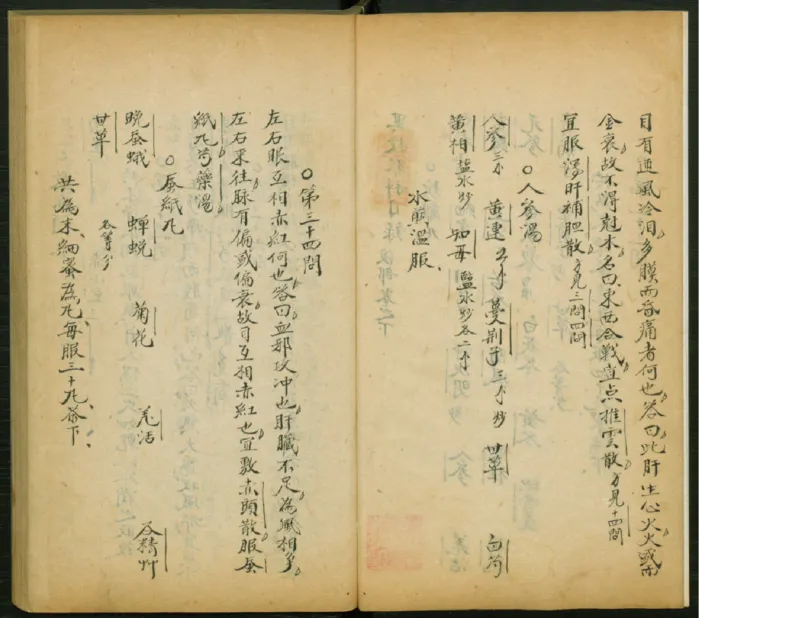 目有迎風冷泪多膜而昏痛者何也答曰此肝生心火火或
金衰故不得尅木名曰東西合戰宜点推雲散方見十四問
宜服瀉肝補胆散方見三問四問
○人參湯
人參三分 黃連五分 蔓荆子三分炒 甘草 白芍
黃柏塩水炒 知母塩水炒各二分
水煎溫服
○第三十四問
左右眼互相赤紅何也答曰血邪攻冲也肝臟不足為風相爭
左右来往脉有偏或偏衰故曰互相赤紅也宜敷赤頭散服蚕
紙丸芎藥湯
○蚕紙丸
晚蚕蛾 蟬蛻 菊花 羗活 谷精艸
甘草 各等分
共為末細蜜為丸每服三十丸茶下